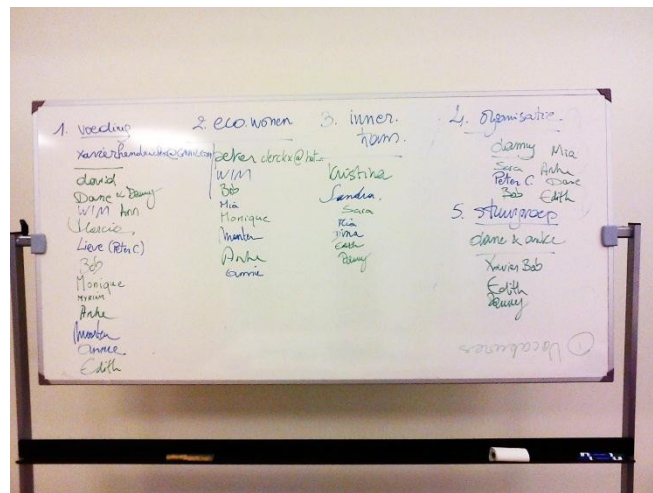 1. voeding
david
Dane & Danny
WIM Ann
Marcia
Lieve (Peter C)
Bob
Monique
MYRIAM
Anke
Maarten
annie
Edith
2. eco.wonen
WIM
Bob
Mia
Monique
Maarten
Anke
annie
3. inner.
trans.
Kristina
Sandra.
Sara
Mia
Edith
Danny
4. organisatie.
danny Mia
Sara Anke
Peter C. Dane
Bob Edith
5. stuurgroep
dane & anke
Xavier Bob
Edith
Danny